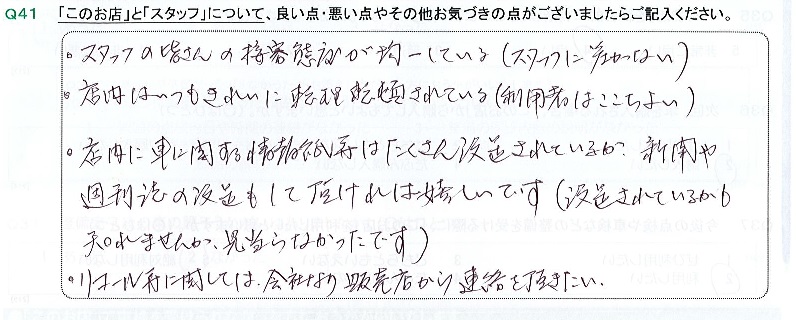 Q41 「このお店」と「スタッフ」について、良い点・悪い点やその他お気づきの点がございましたらご記入ください。
。スタッフの皆さんの接客態度が均一している(スタッフに差がない)
。店内はいつもきれいに整理整頓されている(利用者はここちよい)
。店内に車に関する情報紙等はたくさん設置されているが、新聞や
週刊誌の設置もして頂ければ嬉しいです(設置されているかも
知れませんが、見当らなかったです)
。リコール等に関しては、会社より販売店から連絡を頂きたい。